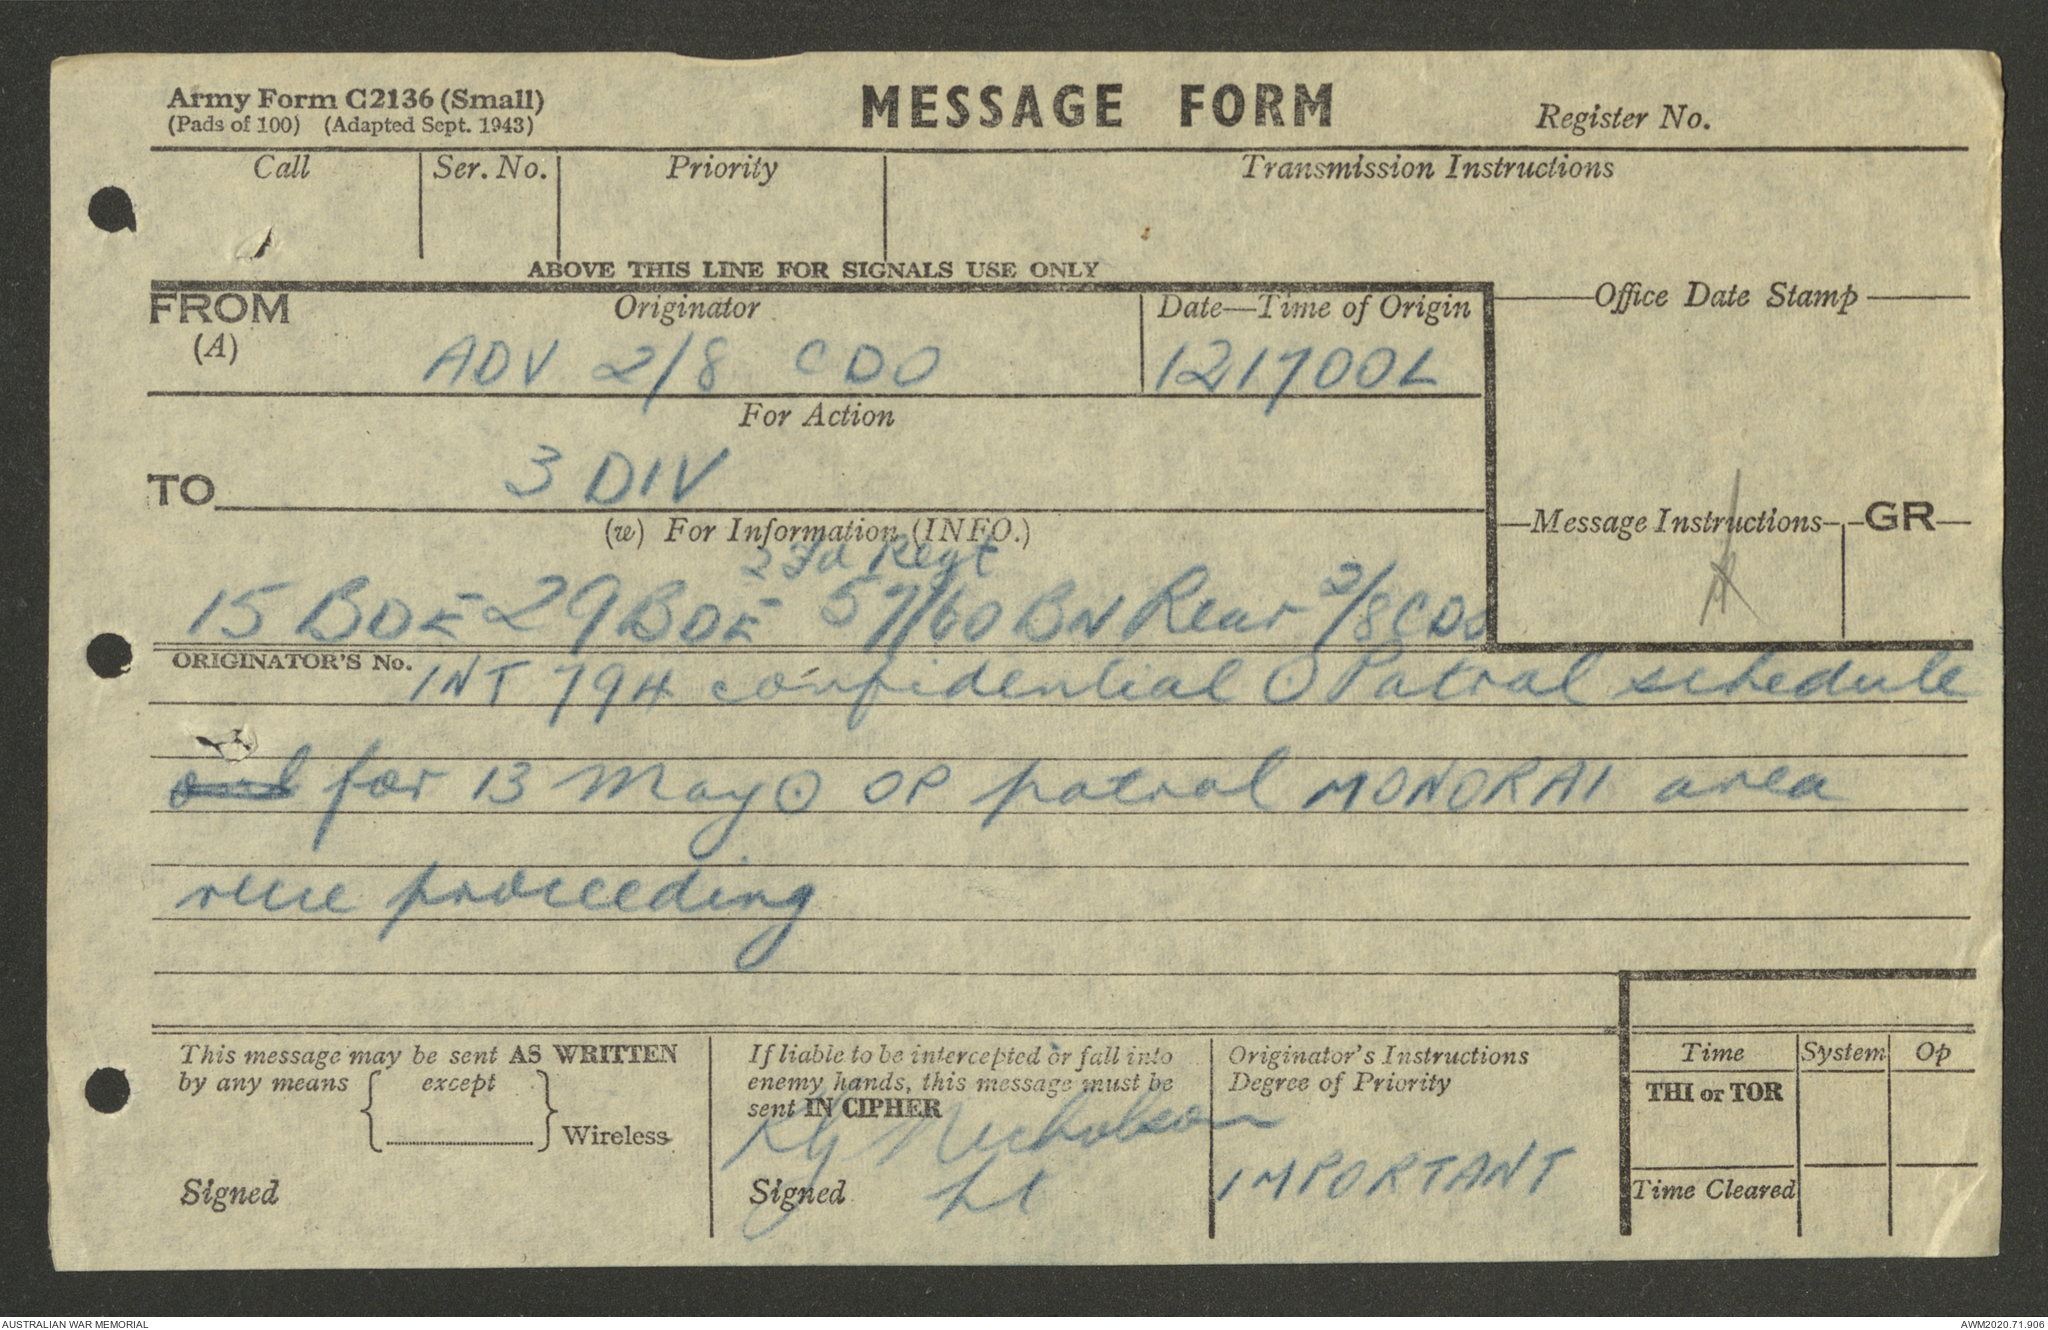 Army Form C2136 (Small)
(Pads of 100) (Adapted Sept. 1943)
MESSAGE FORM
Register No.
Call
Ser. No.
Priority
Transmission Instructions
ABOVE THIS LINE FOR SIGNALS USE ONLY
FROM
(A)
Originator
ADV 2/8 CDO
Date—Time of Origin
121700L
Office Date Stamp
For Action
TO
3 DIV
(w) For Information (INFO.)
Message Instructions
GR
2 Fd Regt
15 BDE 29 BDE 57/60 BN Rear 2/8 CDO
ORIGINATOR'S No.
INT 794 confidential ⊙ Patrol schedule
and for 13 May ⊙ OP patrol MONORAI area
recce proceeding
This message may be sent AS WRITTEN
by any means
except
Wireless
Signed
If liable to be intercepted or fall into
enemy hands, this message must be
sent IN CIPHER
Nicholson
Signed
Lt
Originator's Instructions
Degree of Priority
IMPORTANT
Time
System
Op
THI or TOR
Time Cleared
AUSTRALIAN WAR MEMORIAL
AWM2020.71.906